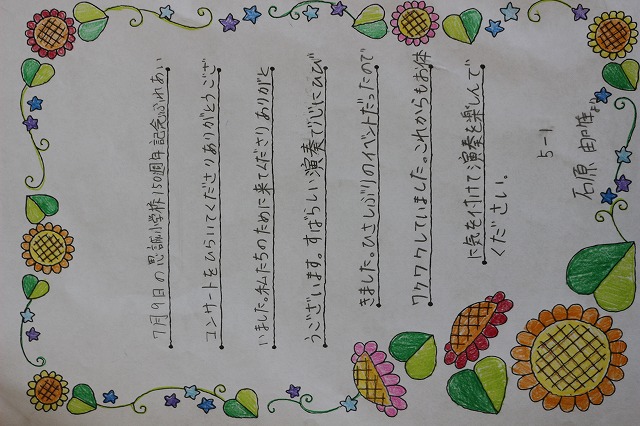 7月9日の思誠小学校150周年記念ふれあい
コンサートをひらいてくださりありがとうござ
いました。私たちのために来てくださりありがと
うございます。すばらしい演奏で心にひび
きました。ひさしぶりのイベントだったので
ワクワクしていました。これからもお体
に気を付けて演奏を楽しんで
ください。
5-1
石原
より